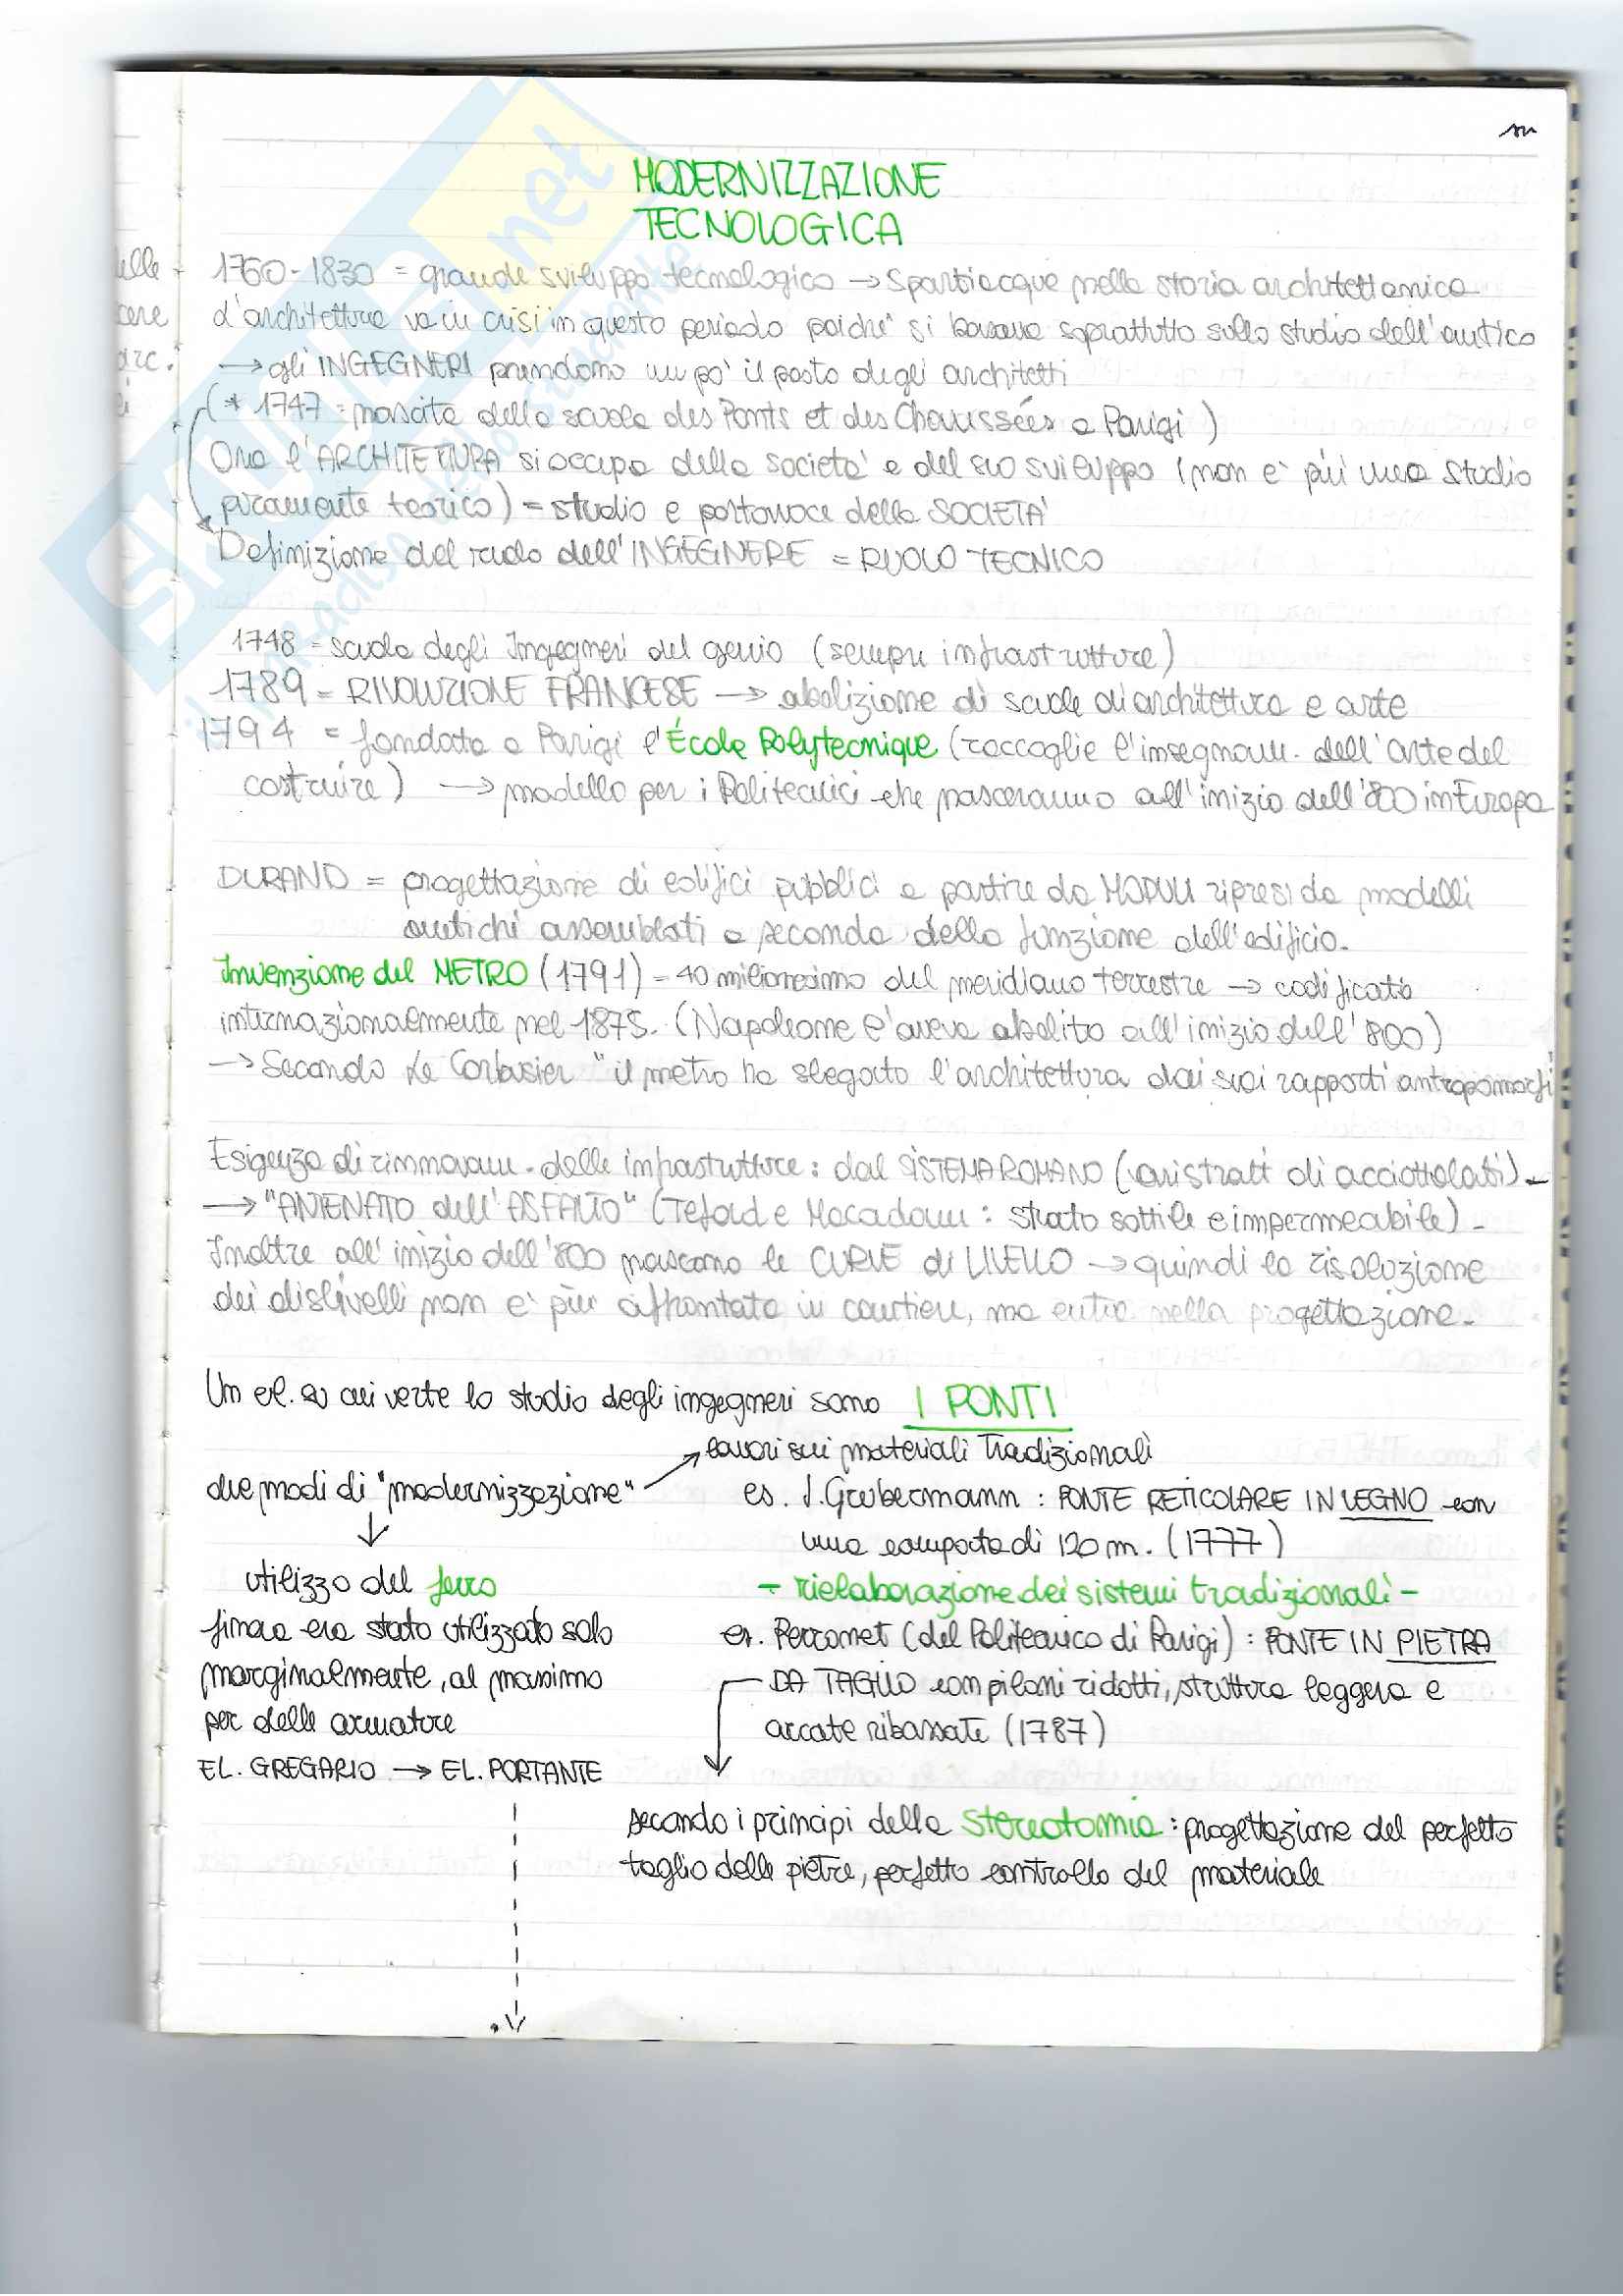 MODERNIZZAZIONE
TECNOLOGICA
1760-1830 = grande sviluppo tecnologico → Spartiacque nella storia architettonica
d'architettura va in crisi in questo periodo poiché si basava soprattutto sullo studio dell'antico
→ gli INGEGNERI prendono un po' il posto degli architetti
(* 1747 = nascita della scuola des Ponts et des Chaussées a Parigi)
Ora l'ARCHITETTURA si occupa della società e del suo sviluppo (non è più uno studio
puramente teorico) = studio e portavoce della SOCIETÀ
Definizione del ruolo dell'INGEGNERE = RUOLO TECNICO
1748 = scuola degli Ingegneri del genio (sempre infrastrutture)
1789 = RIVOLUZIONE FRANCESE → abolizione di scuole di architettura e arte
1794 = fondata a Parigi l'École Polytecnique (raccoglie l'insegnam. dell'arte del
costruire) → modello per i Politecnici che nasceranno all'inizio dell'800 in Europa
DURAND = progettazione di edifici pubblici a partire da MODULI ripresi da modelli
antichi assemblati a seconda della funzione dell'edificio.
Invenzione del METRO (1791) = 40 milionesimo del meridiano terrestre → codificato
internazionalmente nel 1875. (Napoleone l'aveva abolito all'inizio dell'800)
→ Secondo Le Corbusier "il metro ha slegato l'architettura dai suoi rapporti antropomorfi
Esigenza di rinnovam. delle infrastrutture: dal SISTEMA ROMANO (vari strati di acciottolati) -
→ "ANTENATO dell'ASFALTO" (Teford e Macadam: strato sottile e impermeabile) -
Inoltre all'inizio dell'800 nascono le CURVE di LIVELLO → quindi la risoluzione
dei dislivelli non è più affrontata in cantiere, ma entra nella progettazione.
Un el. su cui verte lo studio degli ingegneri sono I PONTI
lavori sui materiali tradizionali
due modi di "modernizzazione"
es. J. Grubermann: PONTE RETICOLARE IN LEGNO con
una campata di 120 m. (1777)
utilizzo del ferro
- rielaborazione dei sistemi tradizionali -
finora era stato utilizzato solo
es. Perronet (del Politecnico di Parigi): PONTE IN PIETRA
marginalmente, al massimo
DA TAGLIO con piloni ridotti, struttura leggera e
per delle armature
arcate ribassate (1787)
EL. GREGARIO → EL. PORTANTE
secondo i principi della stereotomia: progettazione del perfetto
taglio delle pietre, perfetto controllo del materiale
SKUOLA.net